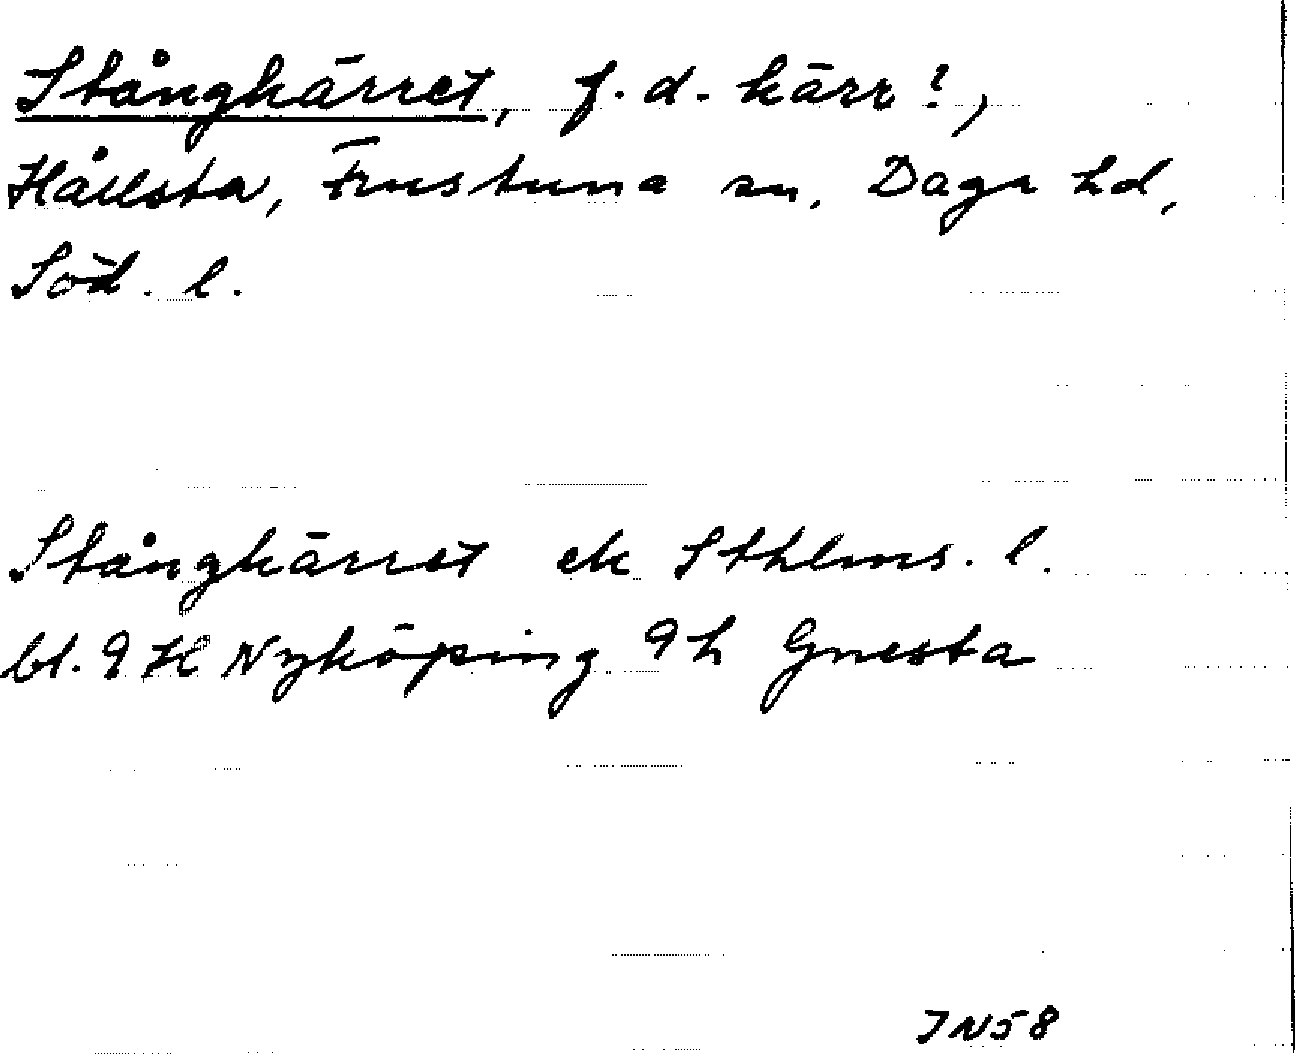 Stångkärret, f.d. kärr!,
Hållsta, Frustuna sn, Daga hd,
Söd. l.
Stångkärret ek Sthlms. l.
bl. 9 H Nyköping 9 h Gnesta
JN58